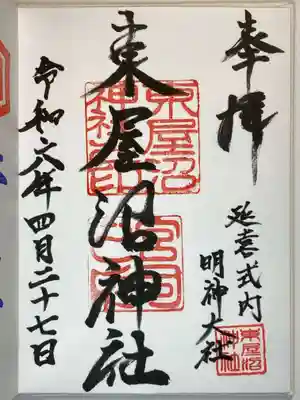 奉拝
延喜式内
明神大社
東屋沼
神社
東屋沼神社
東屋沼
令和六年四月二十七日